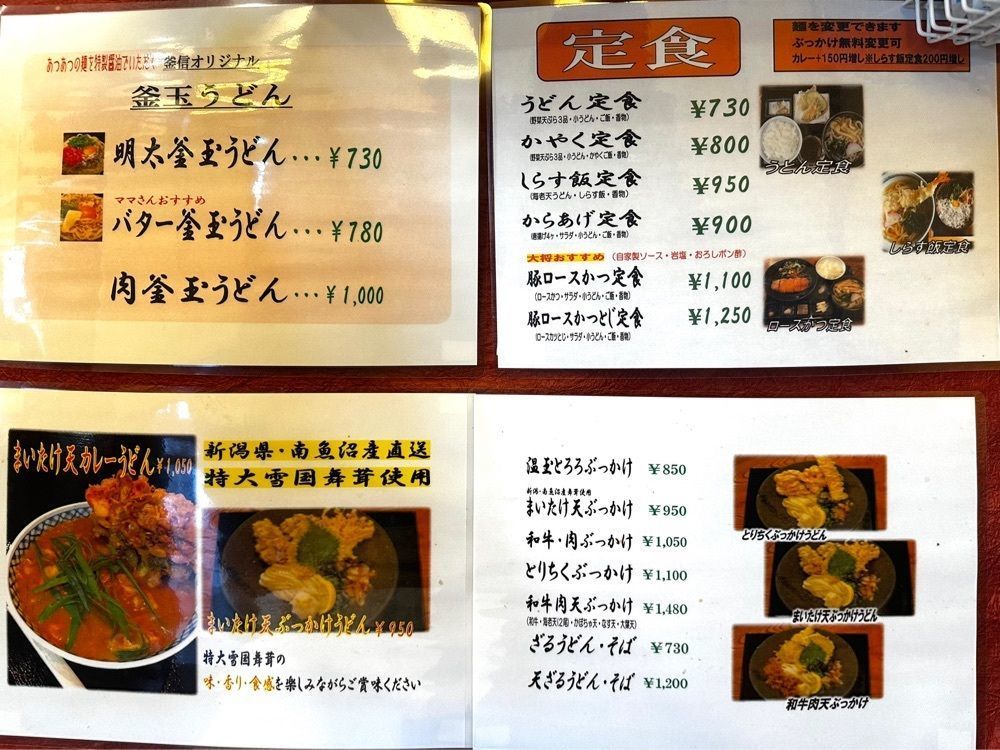 あつあつの麺を特製醤油でいただく 釜信オリジナル
釜玉うどん
明太釜玉うどん･･･￥730
ママさんおすすめ
バター釜玉うどん･･･￥780
肉釜玉うどん･･･￥1,000
定食
麺を変更できます
ぶっかけ無料変更可
カレー+150円増し※しらす飯定食200円増し
うどん定食 ¥730
(野菜天ぷら3品・小うどん・ご飯・香物)
かやく定食 ¥800
(野菜天ぷら3品・小うどん・かやくご飯・香物)
しらす飯定食 ¥950
(海老天うどん・しらす飯・香物)
からあげ定食 ¥900
(唐揚げ4ヶ・サラダ・小うどん・ご飯・香物)
大将おすすめ (自家製ソース・岩塩・おろしポン酢)
豚ロースかつ定食 ¥1,100
(ロースかつ・サラダ・小うどん・ご飯・香物)
豚ロースかつとじ定食 ¥1,250
(ロースカツとじ・サラダ・小うどん・ご飯・香物)
うどん定食
しらす飯定食
ロースかつ定食
まいたけ天カレーうどん￥1,050
新潟県・南魚沼産直送
特大雪国舞茸使用
まいたけ天ぶっかけうどん￥950
特大雪国舞茸の
味・香り・食感を楽しみながらご賞味ください
温玉とろろぶっかけ ￥850
新潟・南魚沼産舞茸使用
まいたけ天ぶっかけ ￥950
和牛・肉ぶっかけ ￥1,050
とりちくぶっかけ ￥1,100
和牛肉天ぶっかけ ￥1,480
(和牛・海老天(2尾)・かぼちゃ天・なす天・大葉天)
ざるうどん・そば ￥730
天ざるうどん・そば ￥1,200
とりちくぶっかけうどん
まいたけ天ぶっかけうどん
和牛肉天ぶっかけ